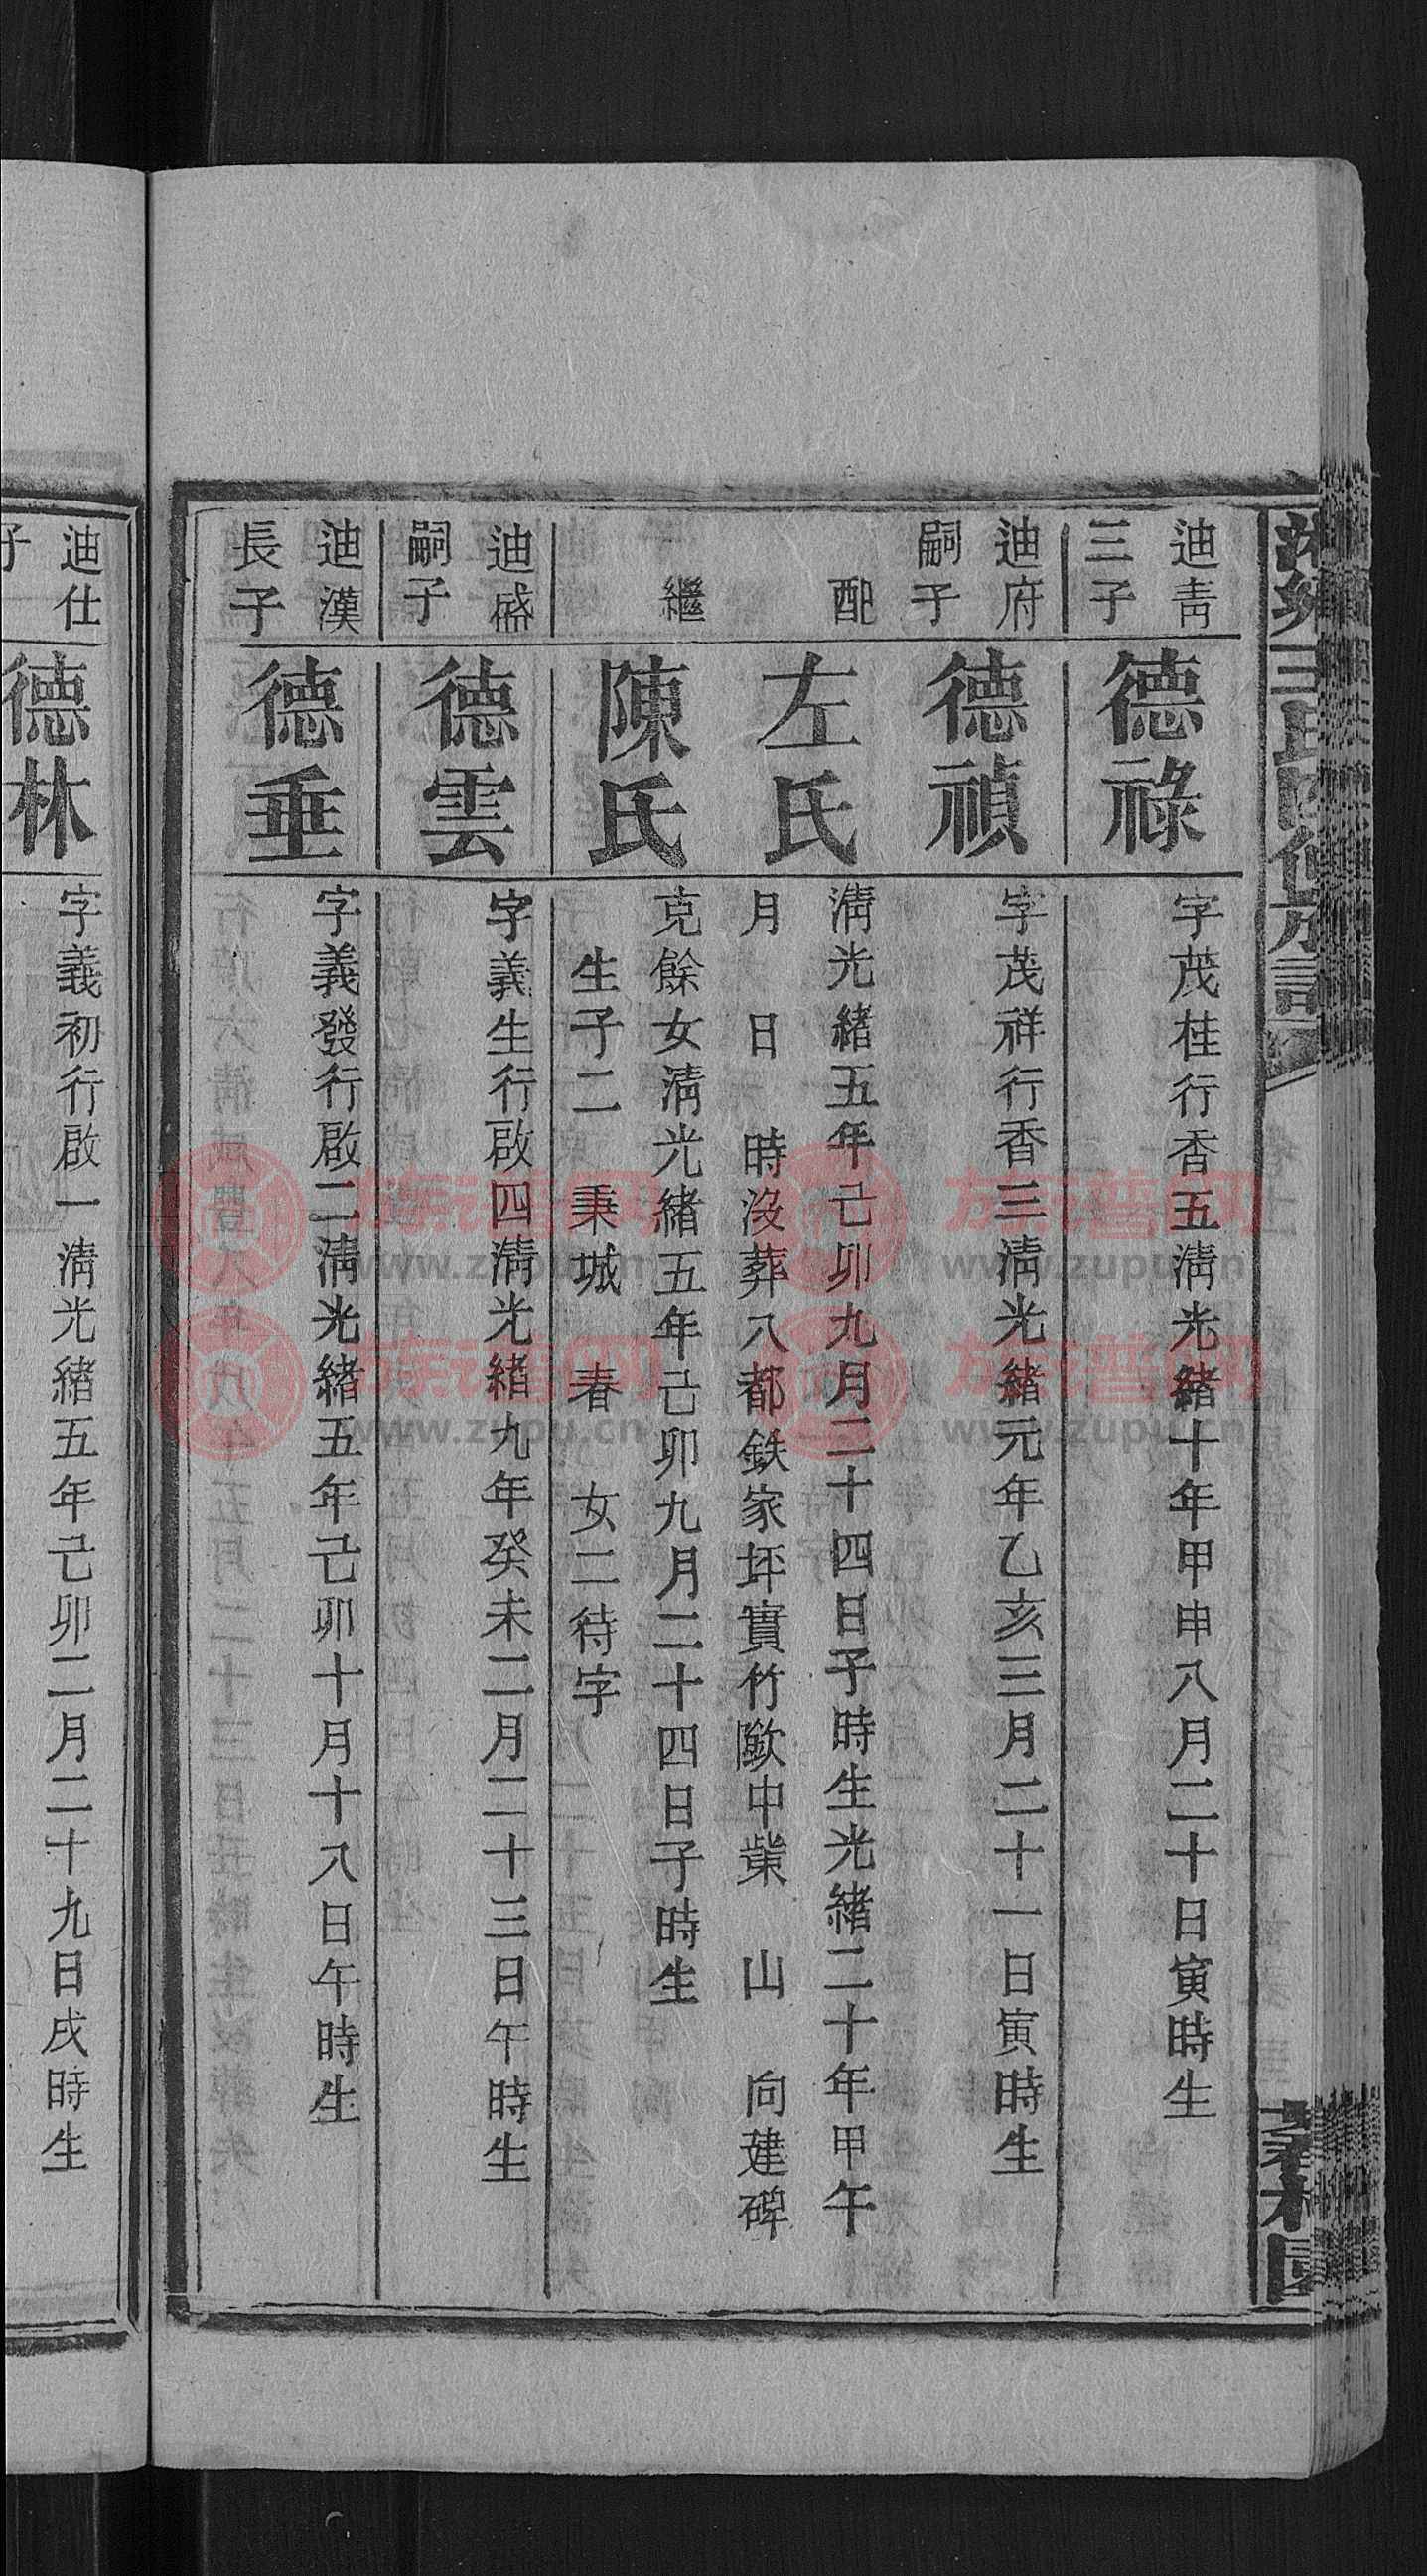 迪靑
三子
德祿
字茂桂行香五淸光緒十年甲申八月二十日寅時生
迪府
嗣子
德禎
字茂祥行香三淸光緒元年乙亥三月二十一日寅時生
配
左氏
淸光緒五年己卯九月二十四日子時生光緒二十年甲午
月 日 時沒葬八都鉄家坪實竹歐中 山 向建碑
繼
陳氏
克餘女淸光緒五年己卯九月二十四日子時生
生子二 秉城 春 女二待字
迪盛
嗣子
德雲
字義生行啟四淸光緒九年癸未二月二十三日午時生
迪漢
長子
德垂
字義發行啟二淸光緒五年己卯十月十八日午時生
迪仕
子
德林
字義初行啟一淸光緒五年己卯二月二十九日戌時生
族譜网
www.zupu.cn
族譜网
www.zupu.cn
族譜网
www.zupu.cn
族譜网
www.zupu.cn